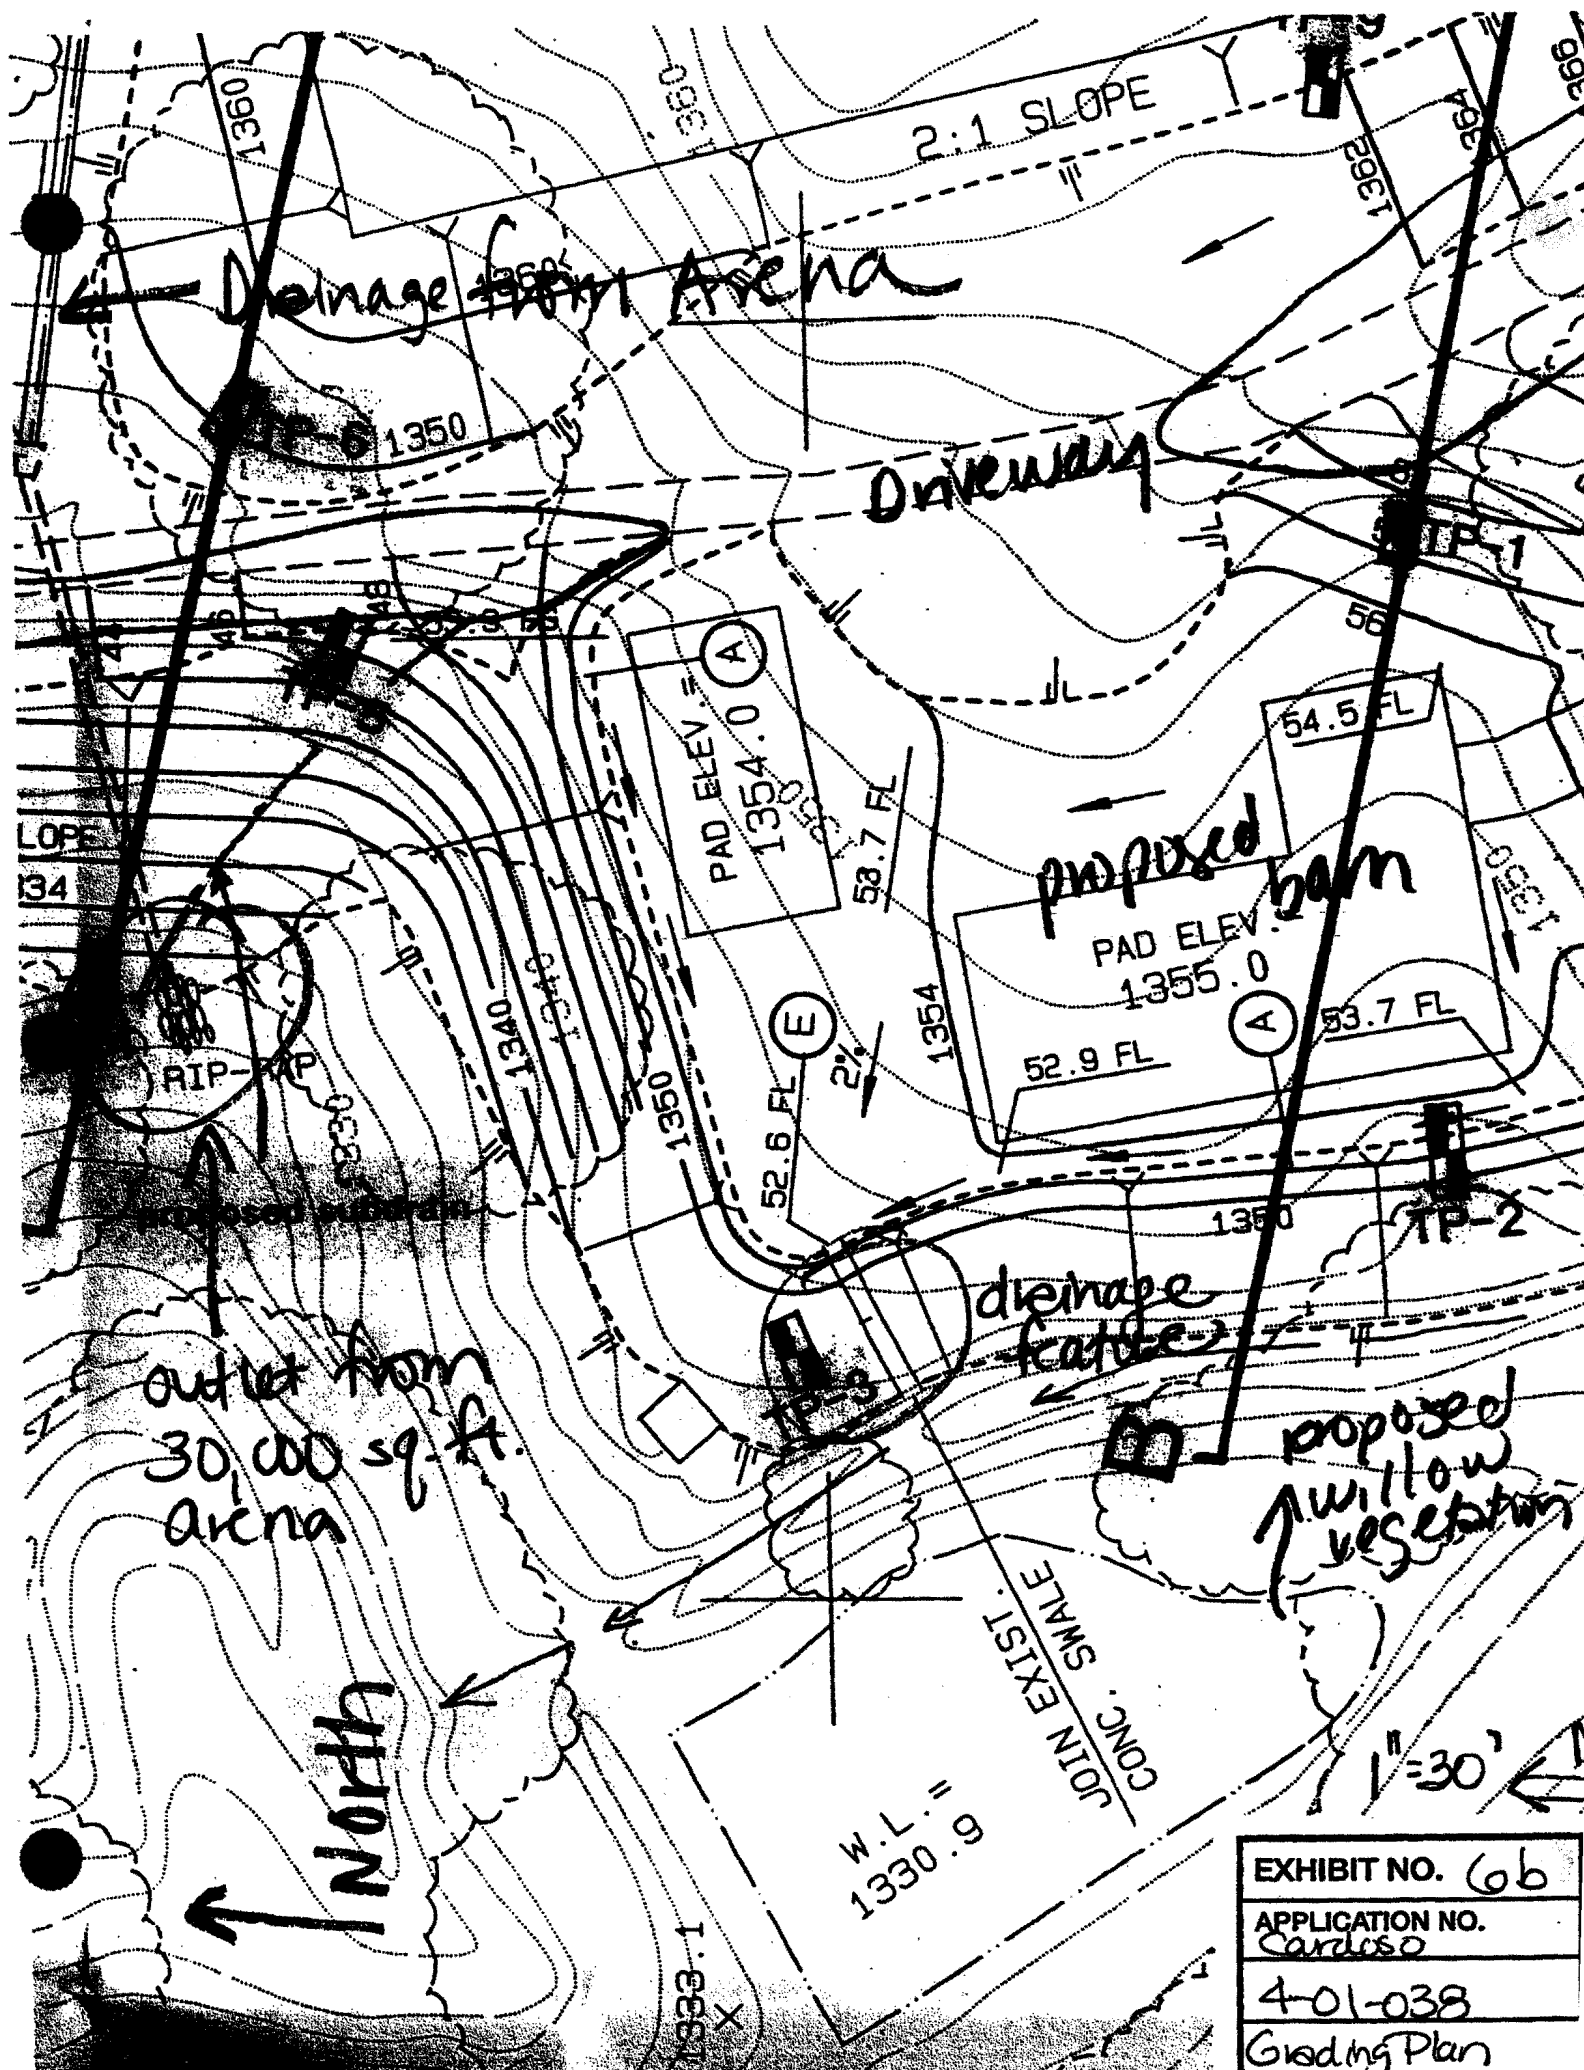 1360
1360
2:1 SLOPE
1362
364
366
Drainage from Arena
1360
TP-6
1350
Driveway
TP-1
44
46
48
56
A
PAD ELEV.=
1354.0
1350
53.7 FL
54.5 FL
LOPE
334
proposed
barn
PAD ELEV.
1355.0
1350
1354
A
52.9 FL
53.7 FL
E
2%
52.6 FL
1340
1340
1350
RIP-RAP
1330
proposed subdrain
1350
TP-2
drainage
feature
TP-3
B
outlet from
30,000 sq. ft.
arena
proposed
willow
vegetation
JOIN EXIST.
CONC. SWALE
North
W.L.=
1330.9
1333.1
1"=30'
EXHIBIT NO. 6b
APPLICATION NO.
Cardoso
4-01-038
Grading Plan